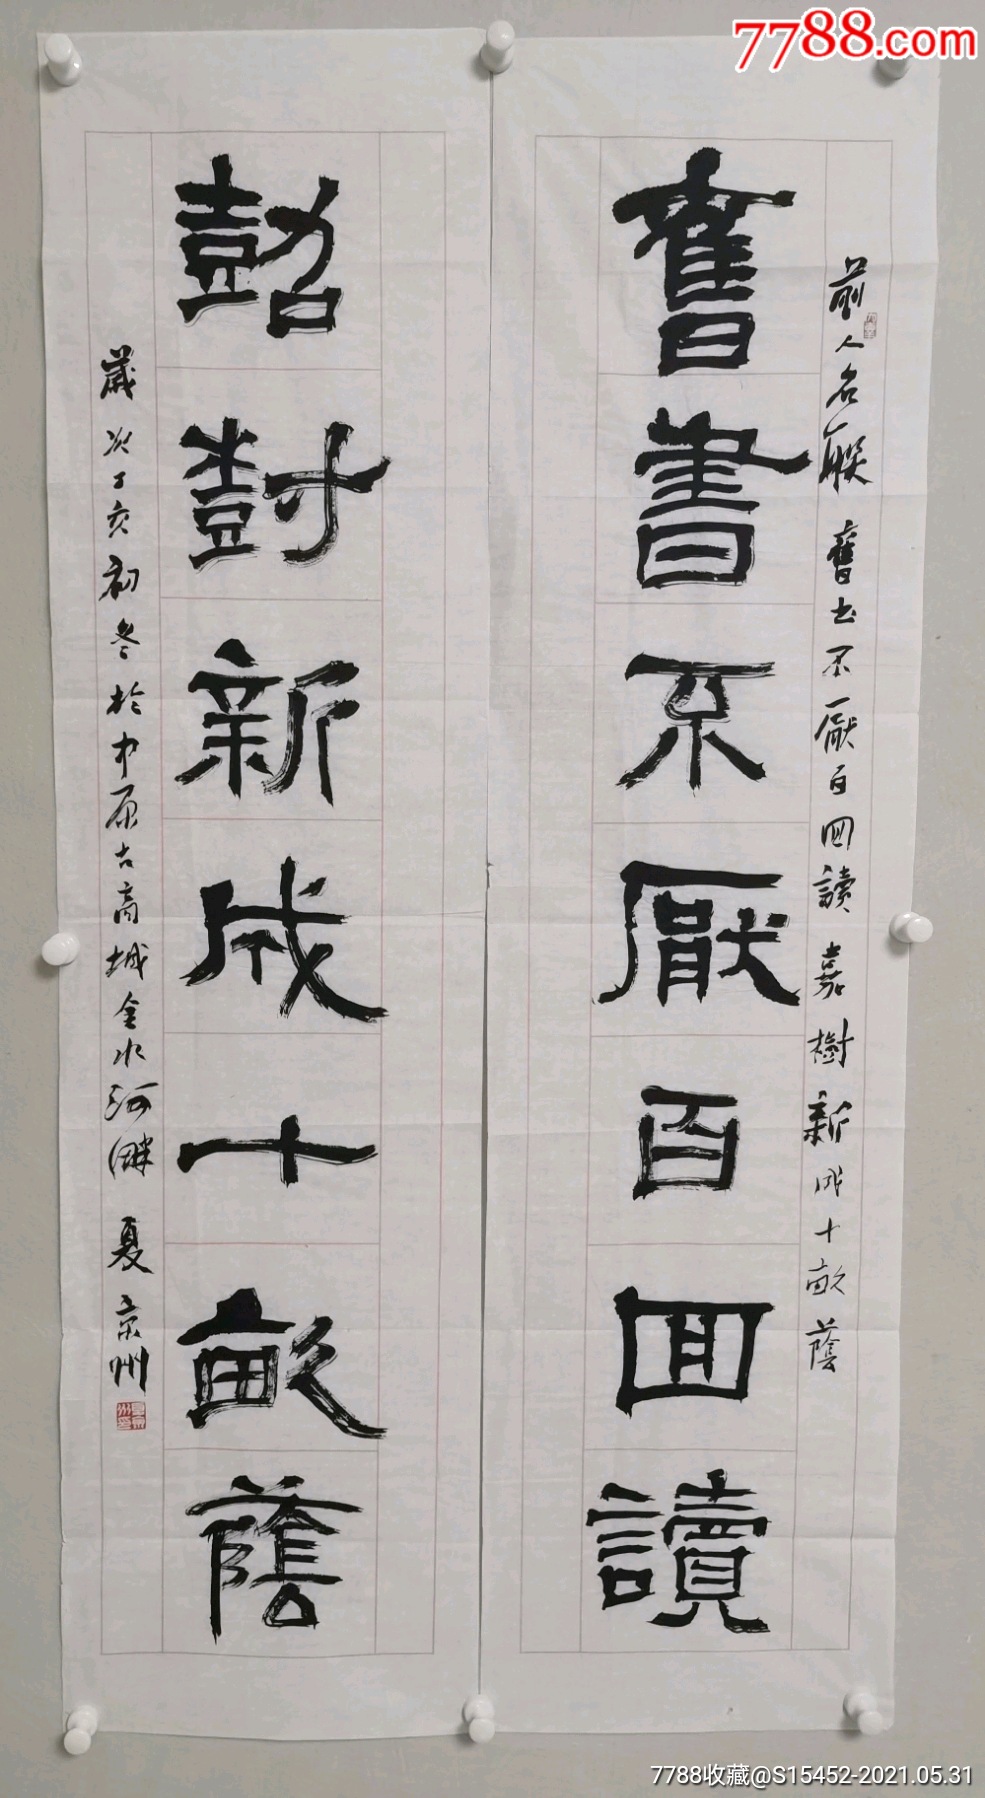 7788.com
前人名联 舊书不厭百回讀 嘉樹新成十畝蔭
舊書不厭百回讀
嘉尌新成十畝蔭
歲次丁亥初冬於中原古商城金水河畔 夏京州
7788收藏@S15452-2021.05.31